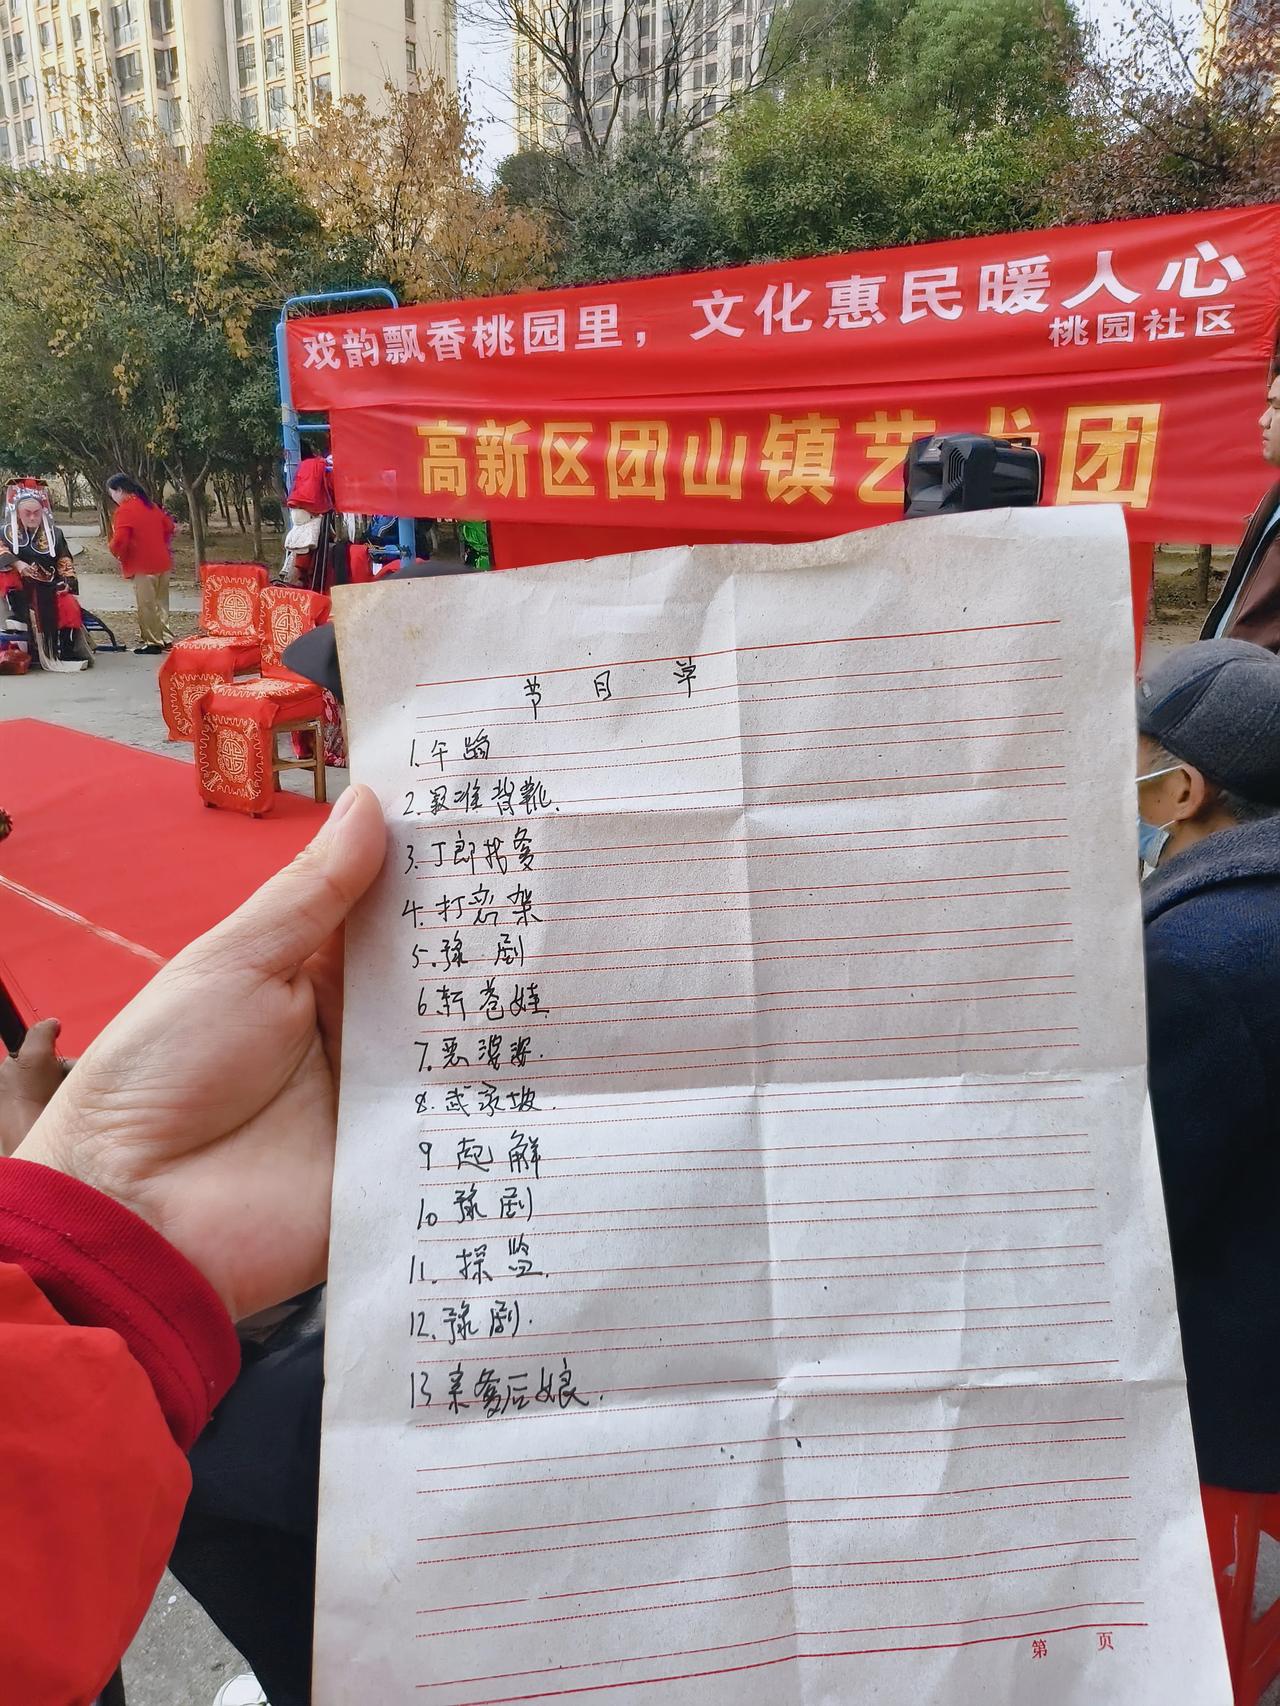 戏韵飘香桃园里，文化惠民暖人心
桃园社区
高新区团山镇艺术团
节目单
1.午踏
2.寇准背靴.
3.丁郎找爹
4.打窑架
5.豫剧
6.轩苍娃
7.恶婆婆.
8.武家坡.
9 起解
10 豫剧
11.探监.
12.豫剧.
13 亲爹后娘.
第 页